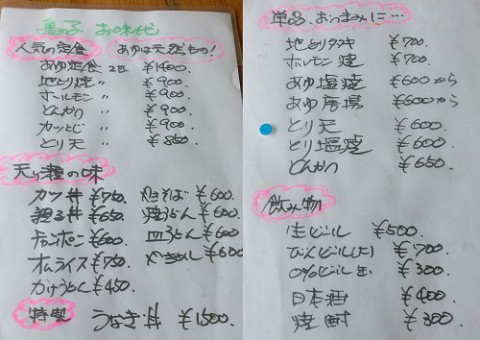 お味代
人気の定食
あゆは天然もの!
あゆ定食 2匹 ¥1400.
地とり焼 〃 ¥900.
ホールモン 〃 ¥900.
とんかつ 〃 ¥900.
カツとじ 〃 ¥900.
とり天 〃 ¥850.
の味
カツ丼 ¥750.
親子丼 ¥650.
チャンポン ¥600.
オムライス ¥750.
かけうどん ¥450.
やきそば ¥600.
焼うどん ¥600.
皿うどん ¥600.
やきめし ¥600
特製 うなぎ丼 ¥1500.
単品、おつまみに…
地とりタタキ ¥700.
ホルモン焼 ¥700.
あゆ塩焼 ¥600から
あゆ唐揚 ¥600から
とり天 ¥600.
とり塩焼 ¥600.
とんかつ ¥650.
飲み物
生ビール ¥500.
びんビール(大) ¥700.
0%ビール ¥300.
日本酒 ¥400.
焼酎 ¥300.